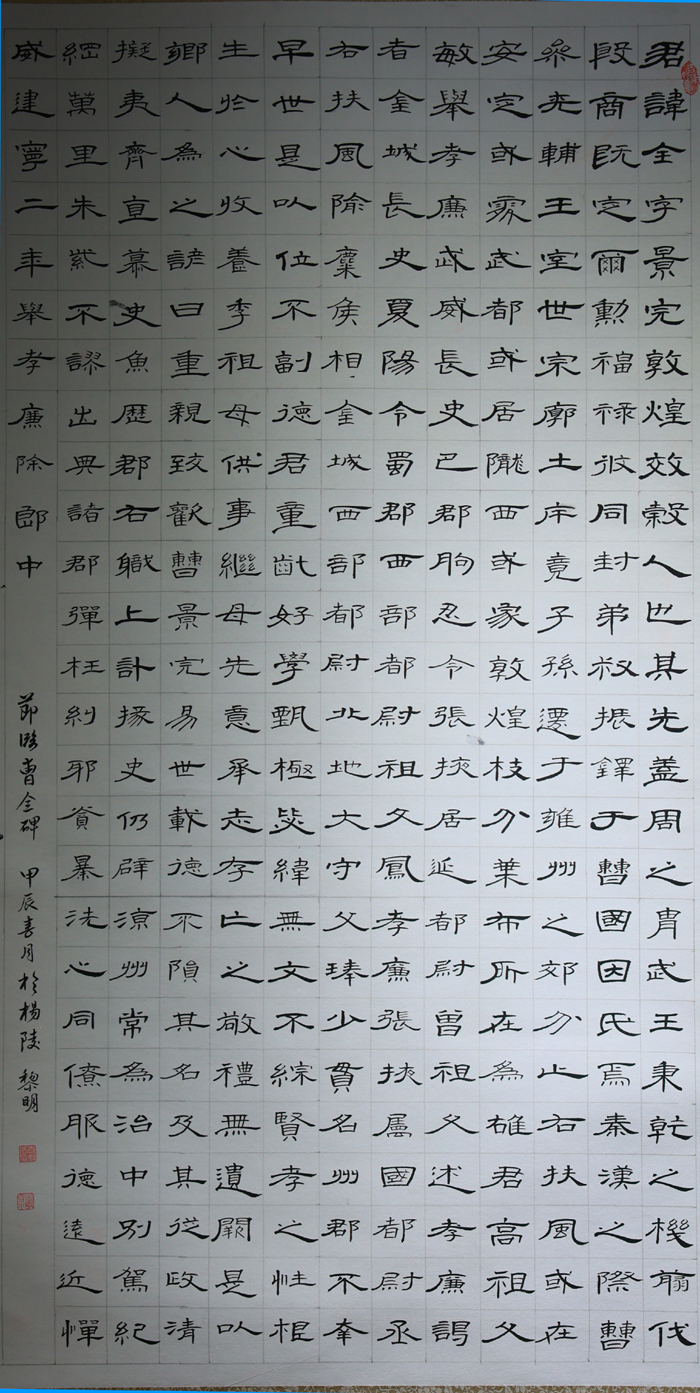 君諱全字景完敦煌效穀人也其先蓋周之胄武王秉乾之機翦伐
殷商既定爾勳福祿攸同封弟叔振鐸于曹國因氏焉秦漢之際曹
參夾輔王室世宗廓土斥竟子孫遷于雍州之郊分止右扶風或在
安定或處武都或居隴西或家敦煌枝分葉布所在為雄君高祖父
敏舉孝廉武威長史巴郡朐忍令張掖居延都尉曾祖父述孝廉謁
者金城長史夏陽令蜀郡西部都尉祖父鳳孝廉張掖屬國都尉丞
右扶風隃麋侯相金城西部都尉北地大守父琫少貫名州郡不幸
早世是以位不副德君童齔好學甄極毖緯無文不綜賢孝之性根
生於心收養季祖母供事繼母先意承志存亡之敬禮無遺闕是以
鄉人為之諺曰重親致歡曹景完易世載德不隕其名及其從政清
擬夷齊直慕史魚歷郡右職上計掾史仍辟涼州常為治中別駕紀
綱萬里朱紫不謬出典諸郡彈枉糾邪貪暴洗心同僚服德遠近憚
威建寧二年舉孝廉除郎中
節臨曹全碑 甲辰春月於楊陵 黎明